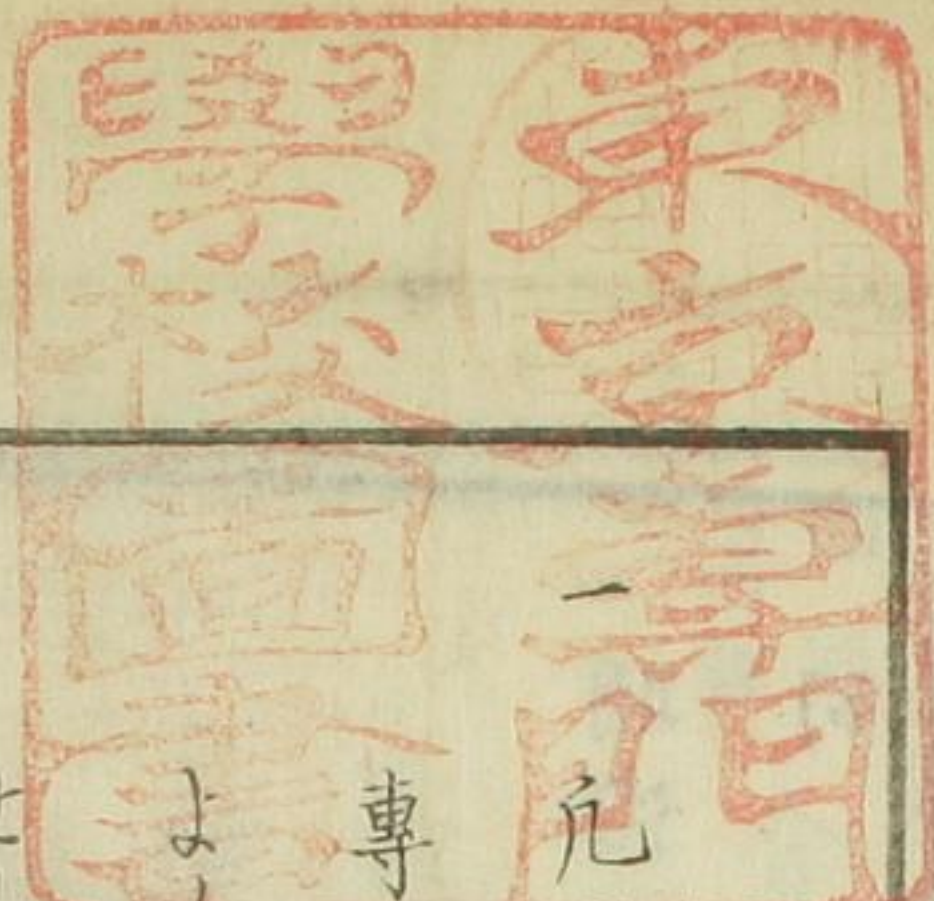 東京專門
學校圖書
一
凢
專
よ